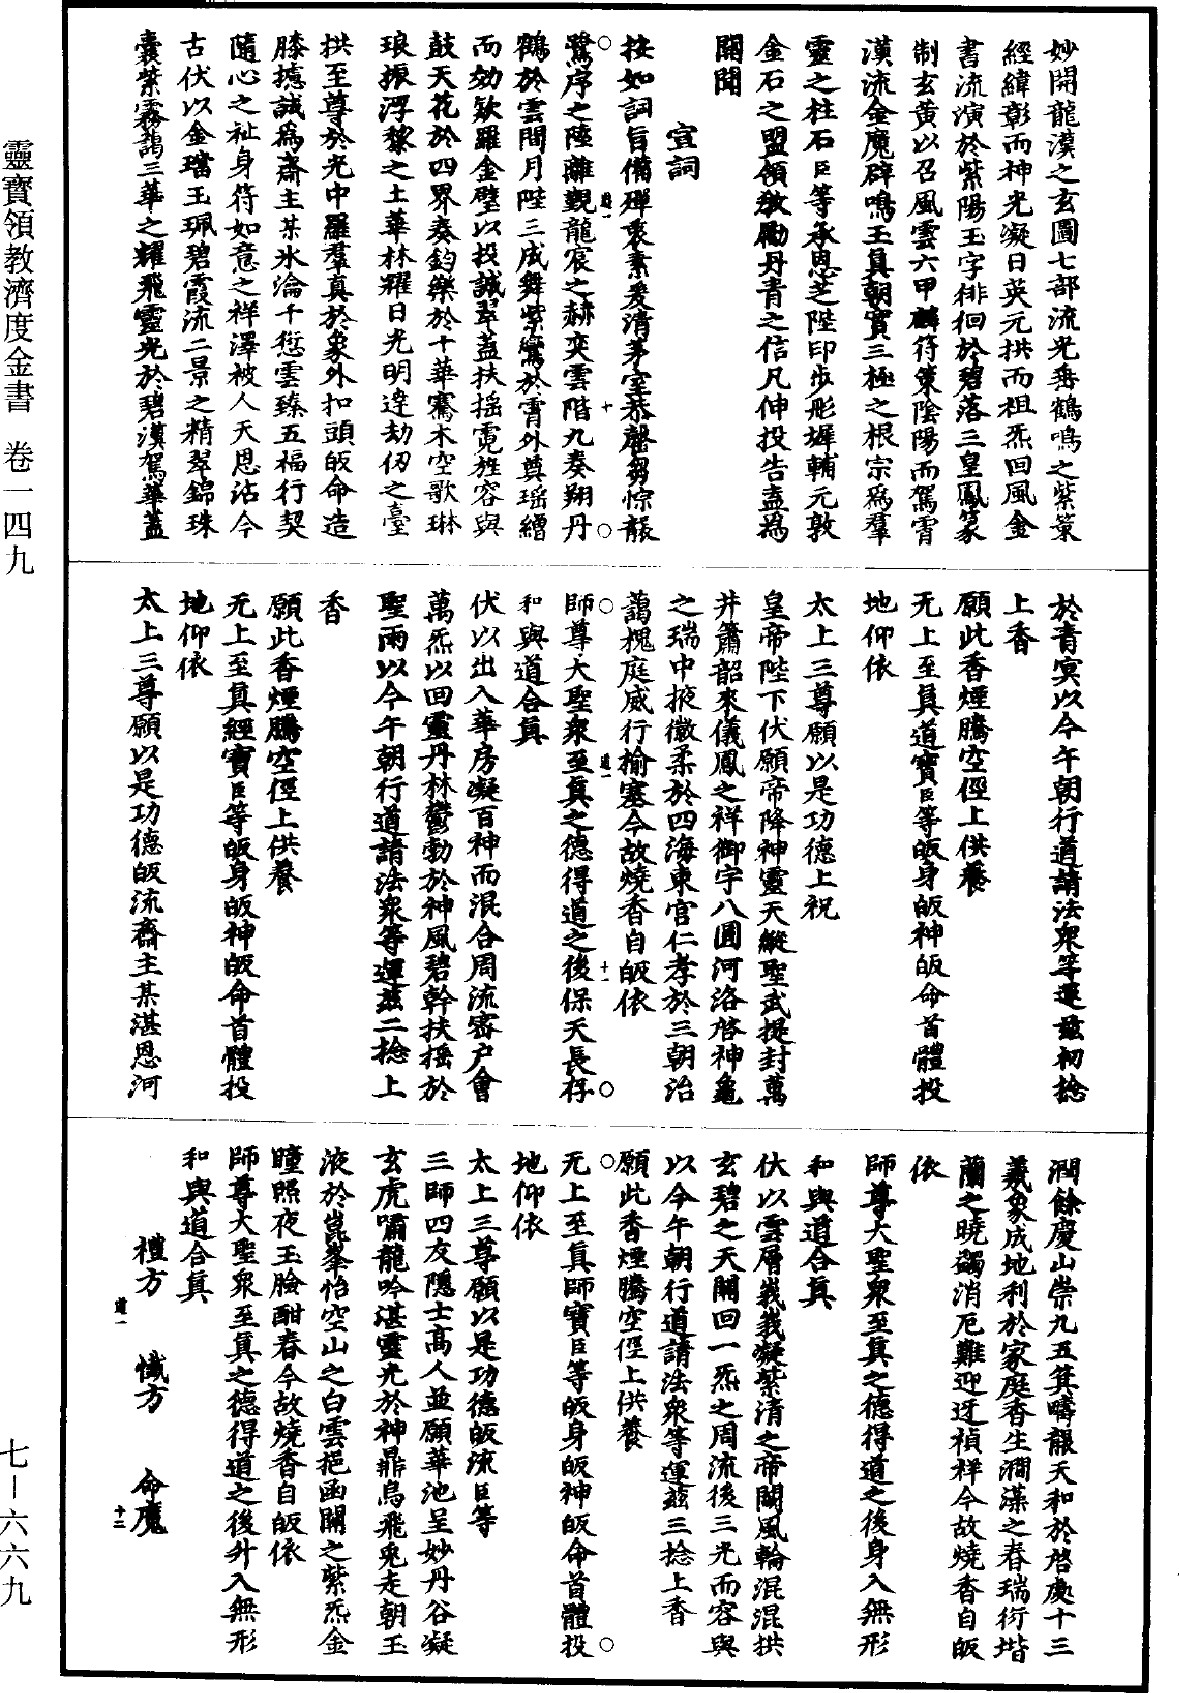 妙開龍漢之玄圖七部流光垂鶴鳴之紫策
經緯彰而神光凝日英元拱而祖炁回風金
書流演於紫陽玉字徘徊於碧落三皇鳳篆
制玄黃以召風雲六甲麟符策陰陽而駕霄
漢流金魔辟鳴玉真朝實三極之根宗為羣
靈之柱石臣等承恩芝陛印步彤墀輔元敦
金石之盟領教勵丹青之信凡伸投告盍為
關聞
宣詞
按如詞旨備殫衷素爰清茅室恭罄芻悰展
鷺序之陸離覲龍宸之赫奕雲階九奏翔丹
鶴於雲間月陛三成舞紫鸞於霄外奠瑶繒
而効欵羅金璧以投誠翠蓋扶摇霓旌容與
鼓天花於四界奏鈞樂於十華騫木空歌琳
琅振浮黎之土華林耀日光明逹劫仞之臺
拱至尊於光中羅羣真於象外扣頭皈命造
膝攄誠為齋主某氷淪千愆雲臻五福行契
隨心之祉身符如意之祥澤被人天恩沾今
古伏以金璫玉珮碧霞流二景之精翠錦珠
囊紫霧藹三華之耀飛靈光於碧漢駕華蓋
於青冥以今午朝行道請法衆等運兹初捻
上香
願此香煙騰空徑上供養
无上至真道寶臣等皈身皈神皈命首體投
地仰依
太上三尊願以是功德上祝
皇帝陛下伏願帝降神靈天縱聖武提封萬
井簫韶來儀鳳之祥御宇八圓河洛啓神龜
之瑞中掖徽柔於四海東宮仁孝於三朝治
藹槐庭威行揄塞今故燒香自皈依
師尊大聖衆至真之德得道之後保天長存
和與道合真
伏以出入華房凝百神而混合周流密户會
萬炁以回靈丹林鬱勃於神風碧幹扶摇於
聖雨以今午朝行道請法衆等運兹二捻上
香
願此香煙騰空徑上供養
无上至真經寶臣等皈身皈神皈命首體投
地仰依
太上三尊願以是功德皈流齋主某湛恩河
潤餘慶山崇九五箕疇報天和於啓處十三
羲象成地利於家庭香生澗藻之春瑞衍堦
蘭之曉蠲消厄難迎迓禎祥今故燒香自皈
依
師尊大聖衆至真之德得道之後身入無形
和與道合真
伏以雲層峩峩凝紫清之帝闕風輪混混拱
玄碧之天關回一炁之周流後三光而容與
以今午朝行道請法衆等運兹三捻上香
願此香煙騰空徑上供養
无上至真師寶臣等皈身皈神皈命首體投
地仰依
太上三尊願以是功德皈流臣等
三師四友隱士高人並願華池呈妙丹谷凝
玄虎嘯龍吟湛靈光於神鼎烏飛兎走朝玉
液於崑峯怡空山之白雲挹函關之紫炁金
瞳照夜玉臉酣春今故燒香自皈依
師尊大聖衆至真之德得道之後升入無形
和與道合真
禮方　懺方　命魔
道一　十
道一　十一
道一　十二
靈寶領教濟度金書　卷一四九
七－六六九